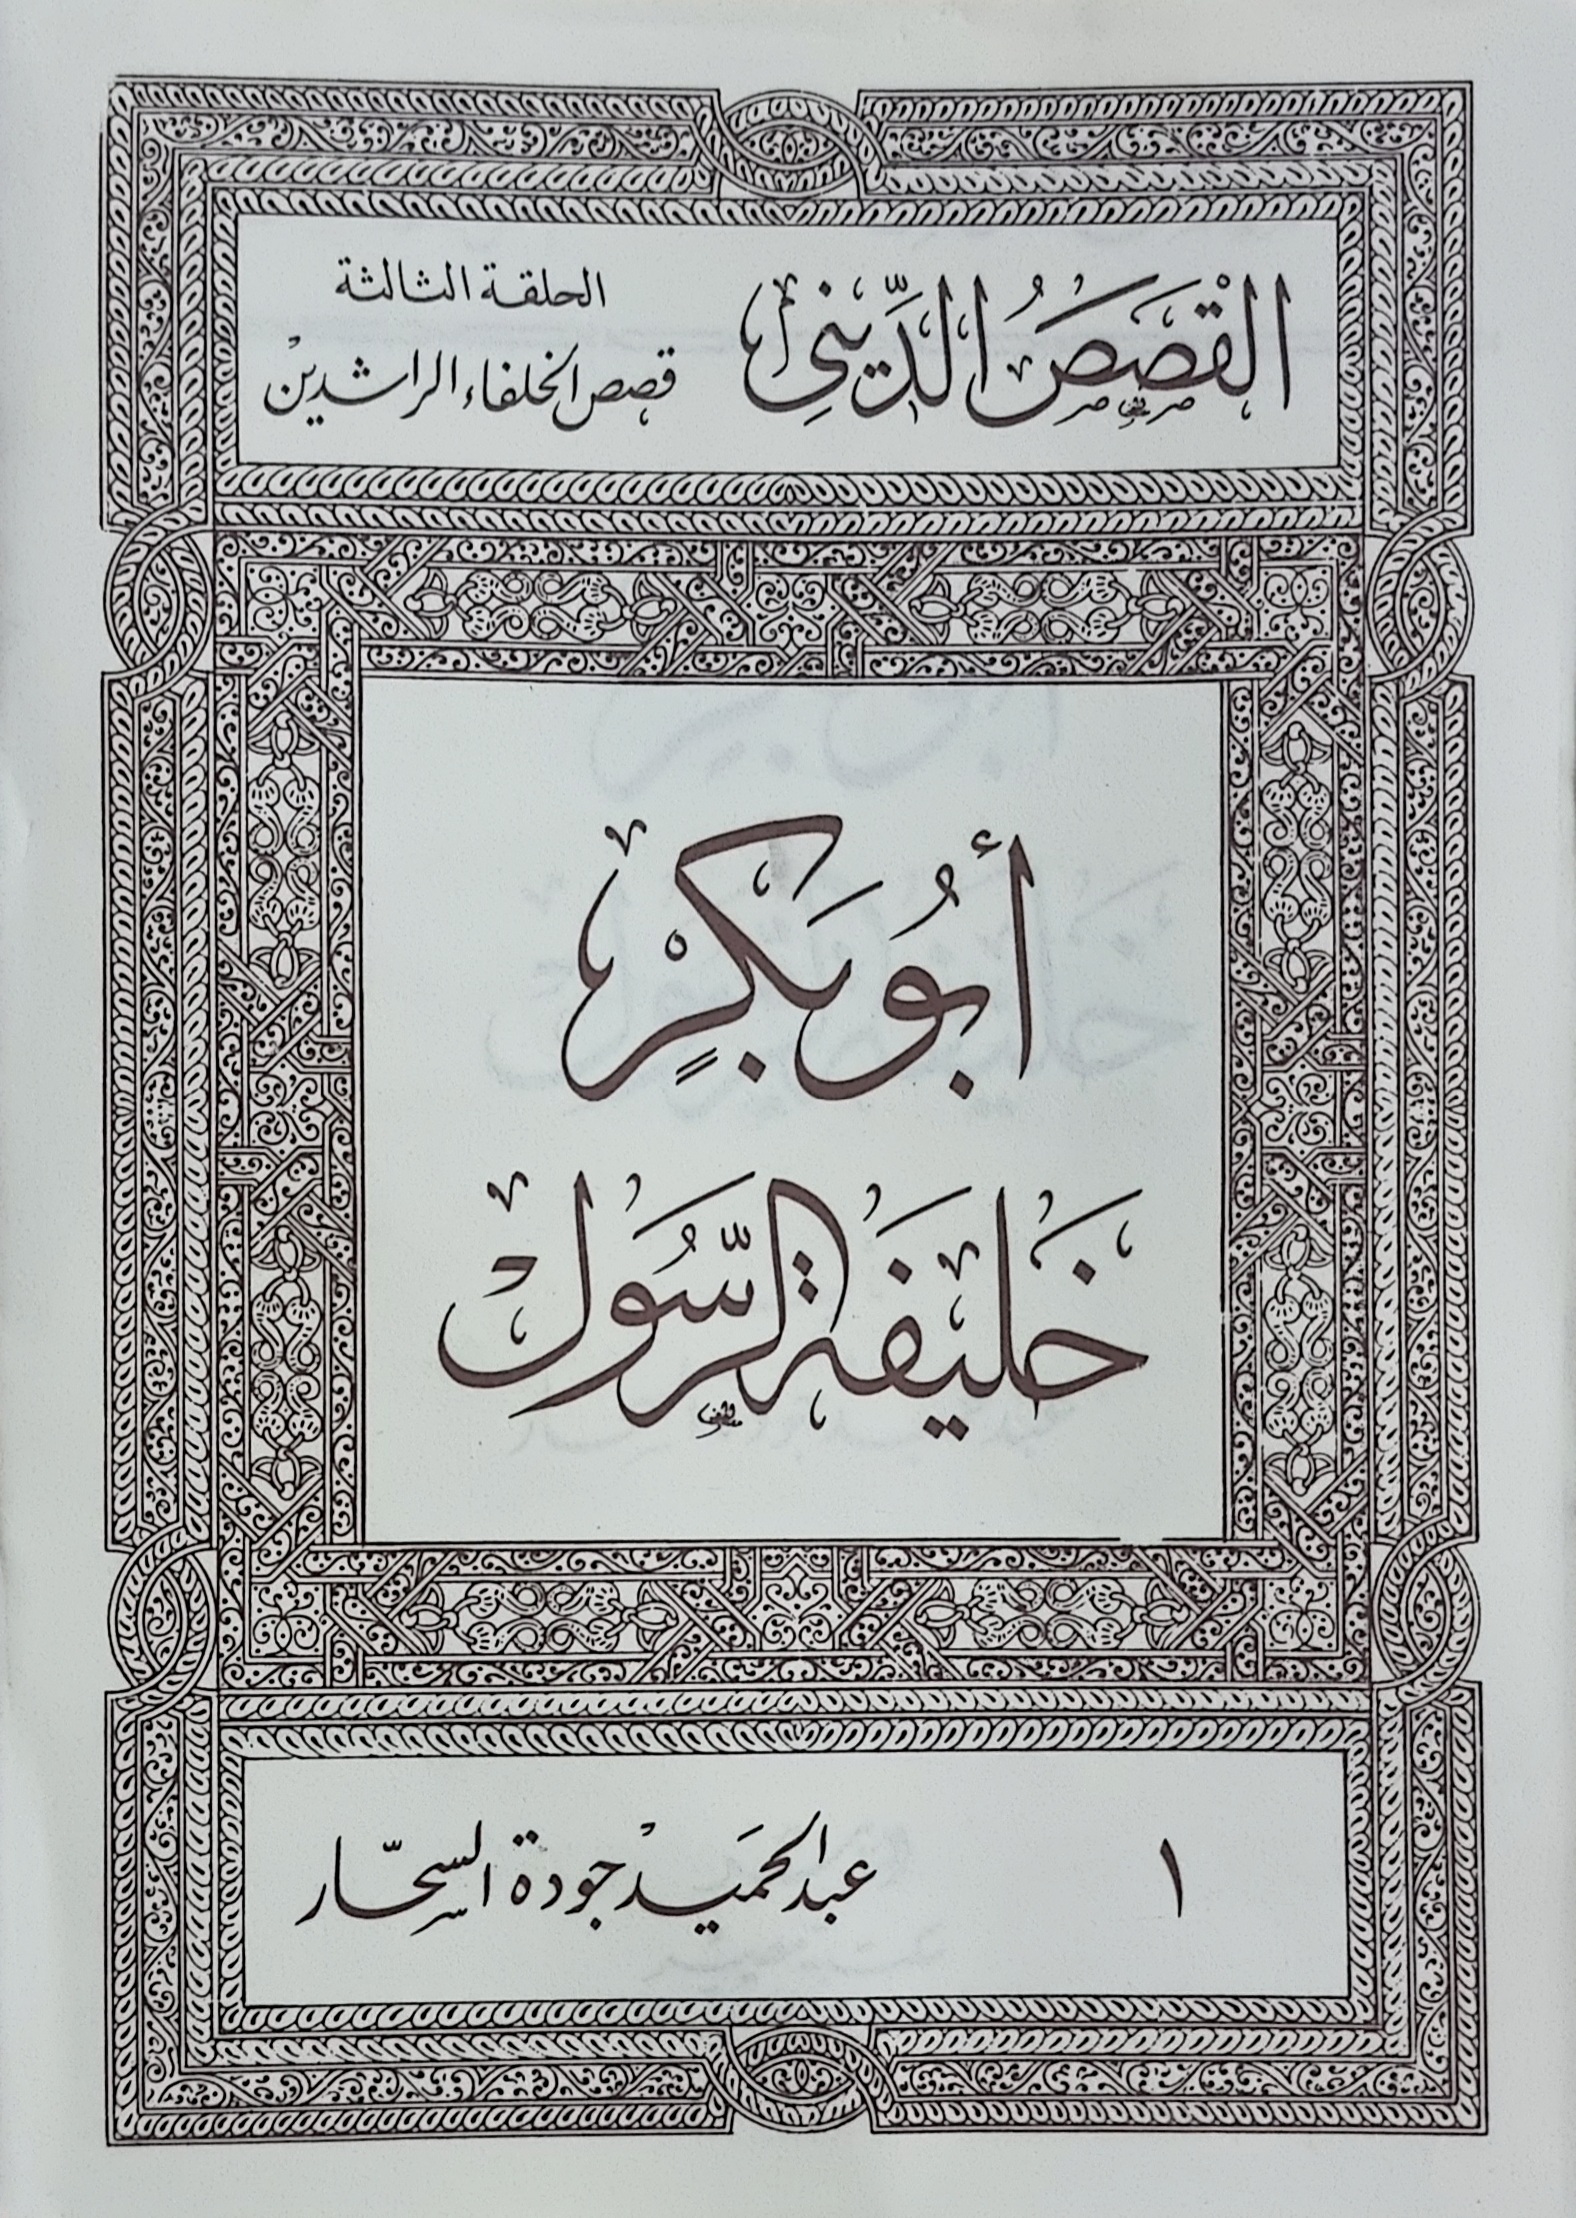 القصص الديني
الحلقة الثالثة
قصص الخلفاء الراشدين
أبو بكر
خليفة الرسول
١
عبد الحميد جودة السحار